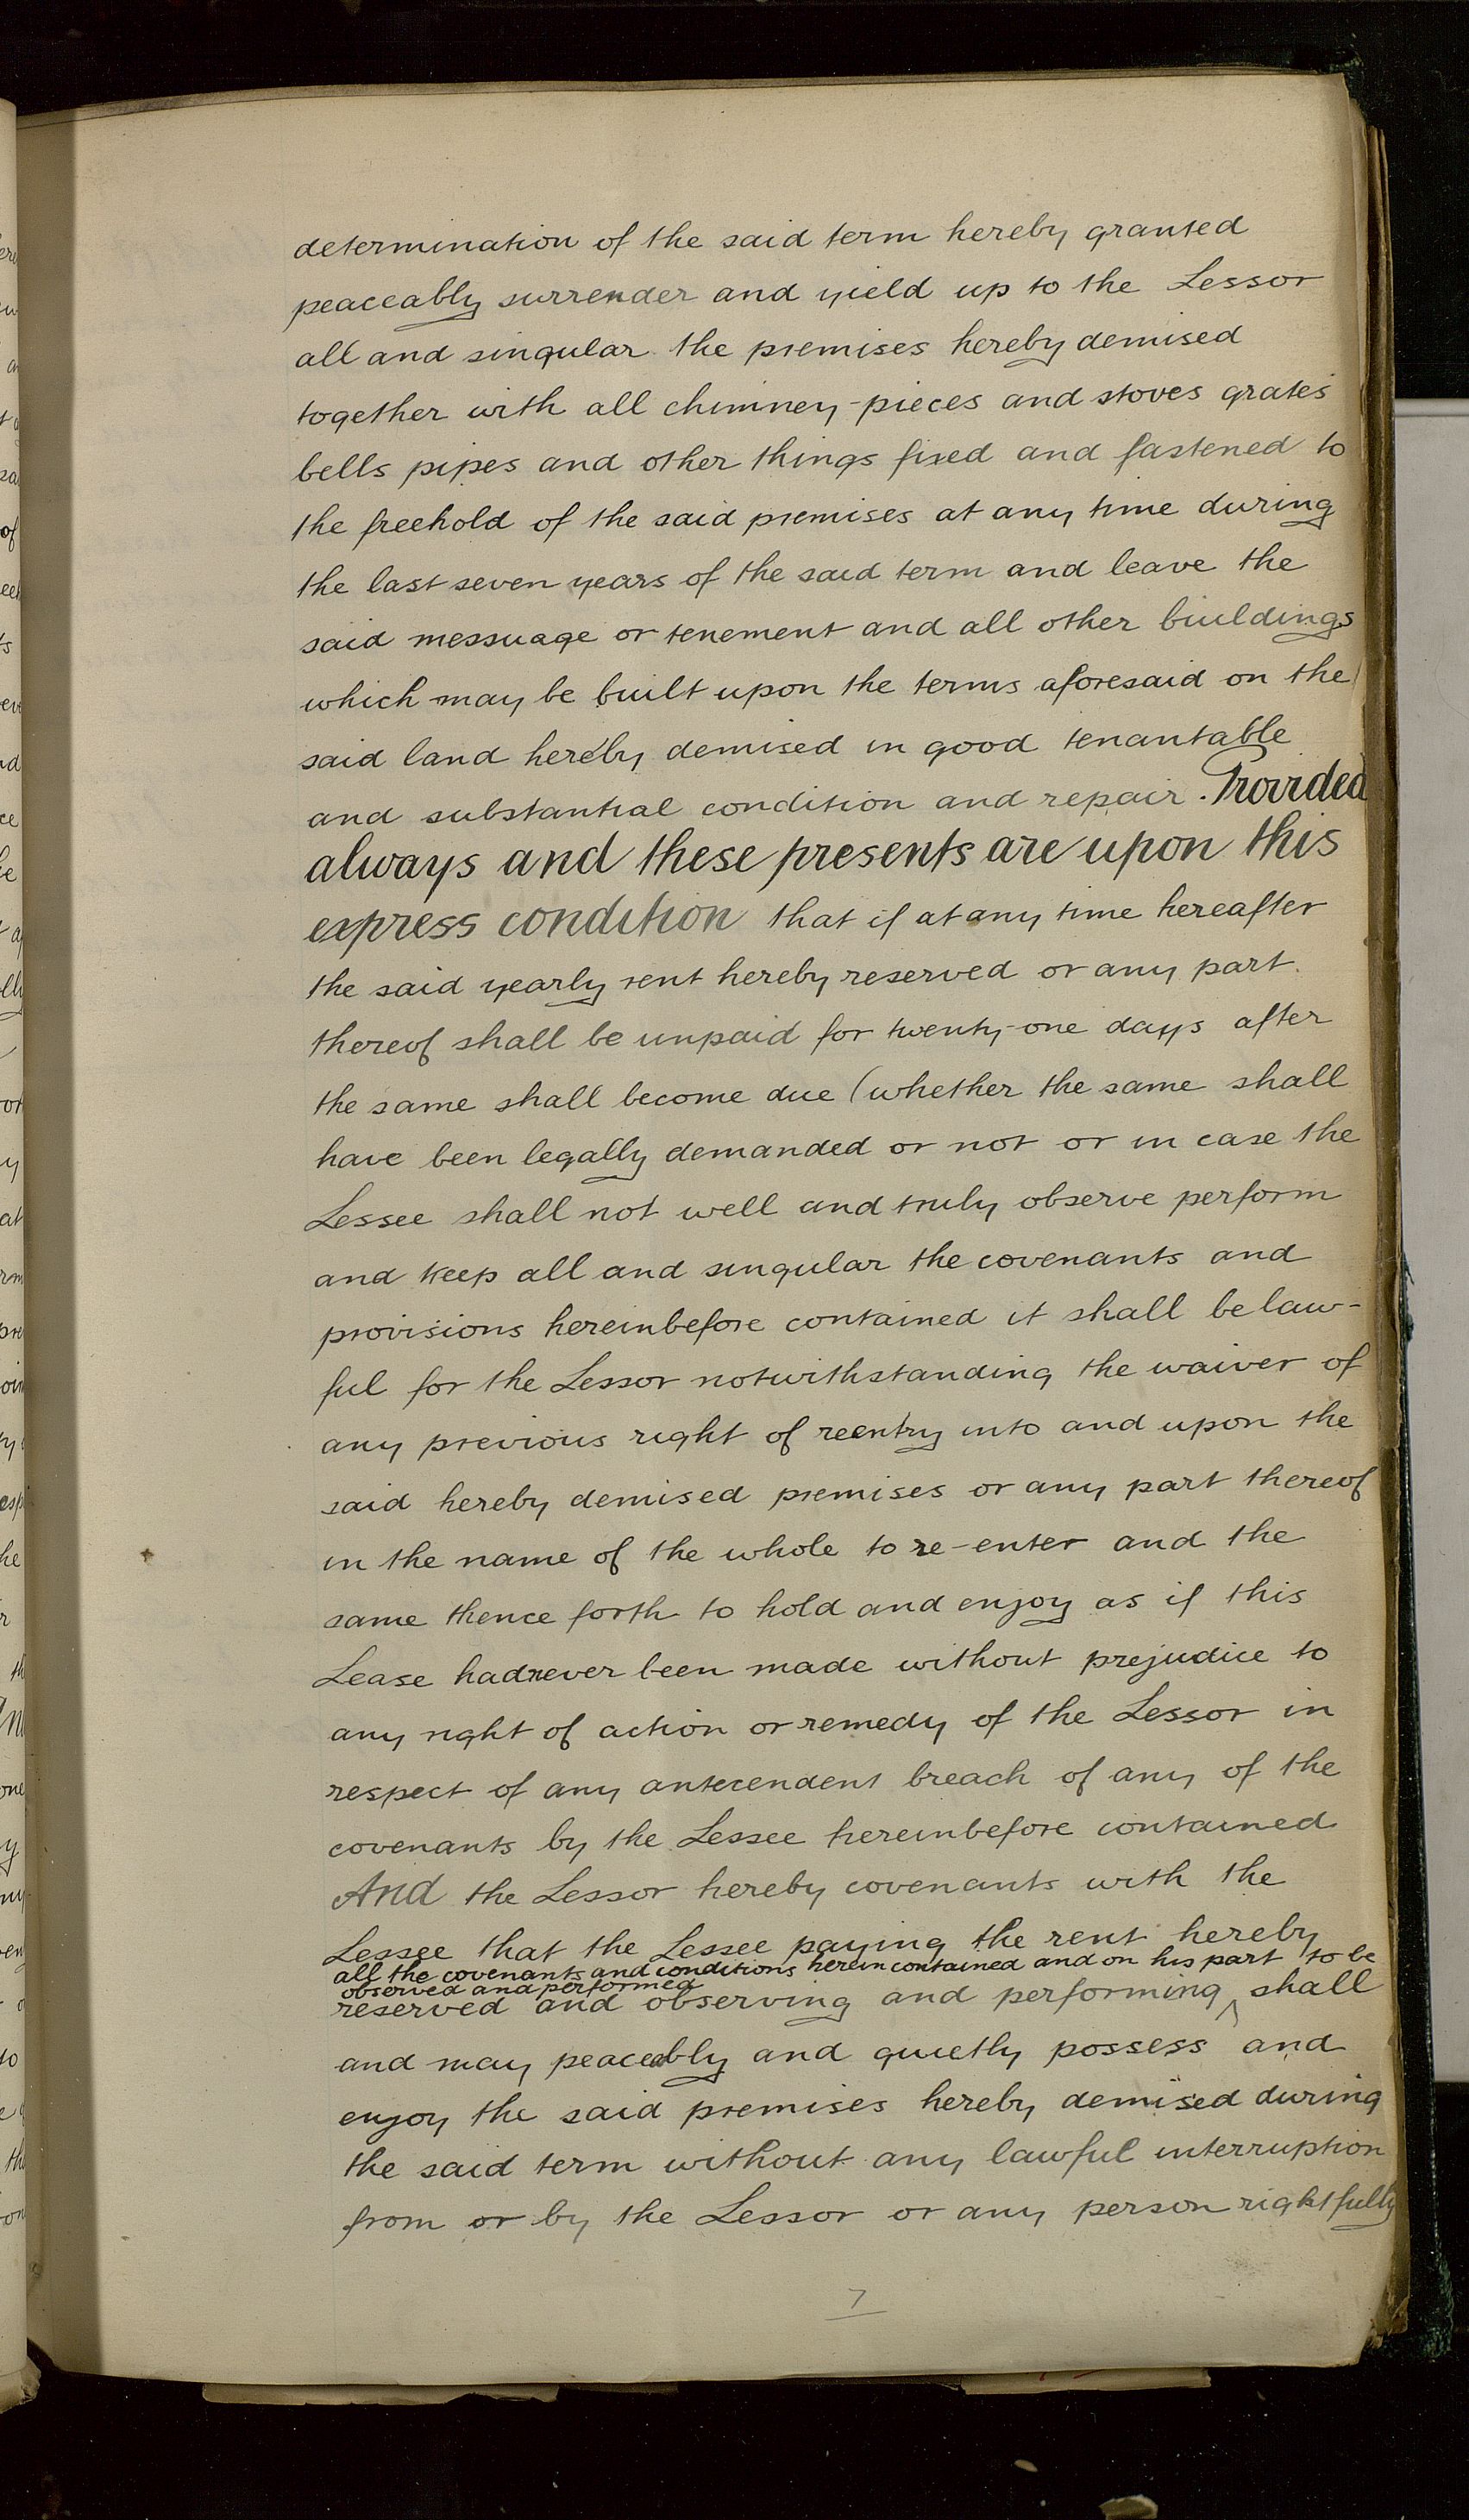 determination of the said term hereby granted
peaceably surrender and yield up to the Lessor
all and singular the premises hereby demised
together with all chimney-pieces and stoves grates
bells pipes and other things fixed and fastened to
the freehold of the said premises at any time during
the last seven years of the said term and leave the
said messuage or tenement and all other buildings
which may be built upon the terms aforesaid on the
said land hereby demised in good tenantable
and substantial condition and repair. Provided
always and these presents are upon this
express condition that if at any time hereafter
the said yearly rent hereby reserved or any part
thereof shall be unpaid for twenty-one days after
the same shall become due (whether the same shall
have been legally demanded or not or in case the
Lessee shall not well and truly observe perform
and keep all and singular the covenants and
provisions hereinbefore contained it shall be law-
ful for the Lessor notwithstanding the waiver of
any previous right of reentry into and upon the
said hereby demised premises or any part thereof
in the name of the whole to re-enter and the
same thence forth to hold and enjoy as if this
Lease had never been made without prejudice to
any right of action or remedy of the Lessor in
respect of any antecendent breach of any of the
covenants by the Lessee hereinbefore contained
And the Lessor hereby covenants with the
Lessee that the Lessee paying the rent hereby
all the covenants and conditions herein contained and on his part to be
observed and performed
reserved and observing and performing ^ shall
and may peaceably and quietly possess and
enjoy the said premises hereby demised during
the said term without any lawful interruption
from or by the Lessor or any person rightfully
7